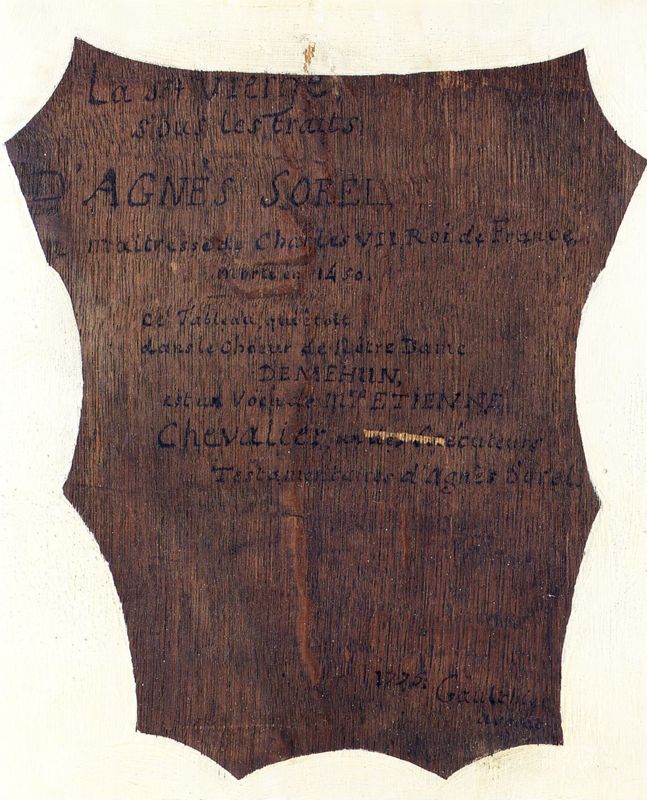 La Ste Vierge,
sous les traits
D'AGNÈS SOREL,
maîtresse de Charles VII, Roi de France,
morte en 1450.
Ce Tableau, qui étoit
dans le Choeur de Nôtre Dame
DE MEHUN,
est un Voeu de Mre ETIENNE
Chevalier, un des Exécuteurs
Testamentaires d'Agnès Sorel.
1775.
Gaulthier
avocat